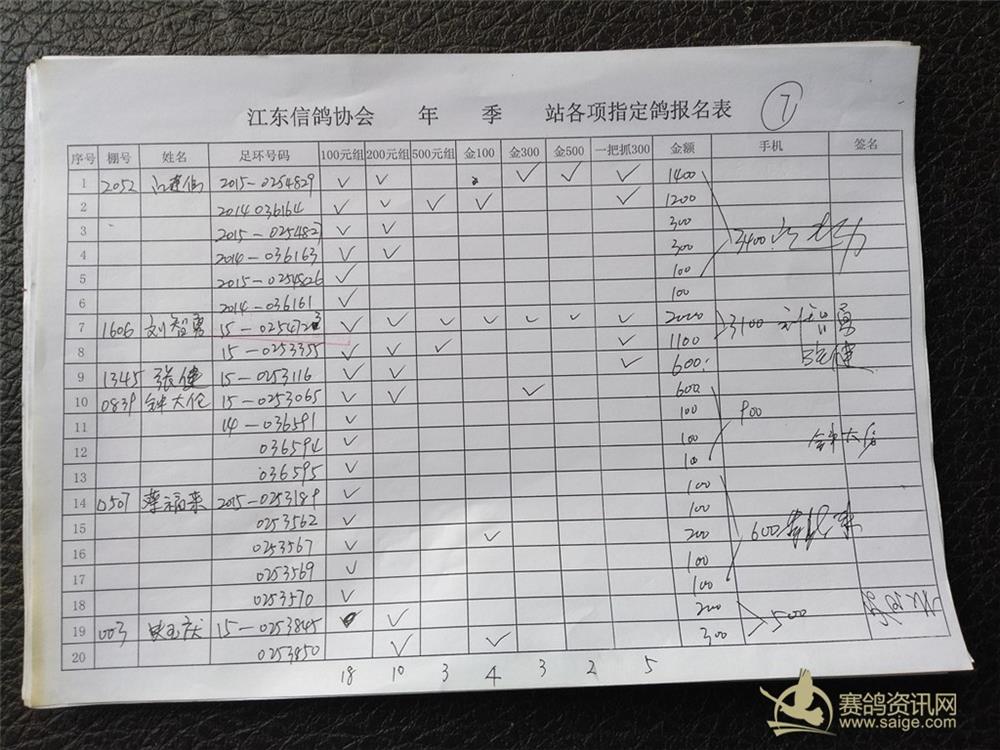 江东信鸽协会 年 季 站各项指定鸽报名表 7
序号 棚号 姓名 足环号码 100元组 200元组 500元组 金100 金300 金500 一把抓300 金额 手机 签名
1 2052 2015-0254829 ✓ ✓ ✓ ✓ ✓ 1400
2 2014 036164 ✓ ✓ ✓ ✓ ✓ 1200
3 2015-0254827 ✓ ✓ 300
4 2014-036163 ✓ ✓ 300 3400
5 2015-0254826 ✓ 100
6 2014-036161 ✓ 100
7 1606 刘智勇 15-0254723 ✓ ✓ ✓ ✓ ✓ ✓ ✓ 2000 3100 刘智勇
8 15-0253355 ✓ ✓ ✓ ✓ 1100
9 1345 张健 15-0253116 ✓ ✓ ✓ 600 张健
10 0839 钟大伦 15-0253065 ✓ ✓ ✓ 600
11 14-036591 ✓ 100 900
12 036594 ✓ 100 钟大伦
13 036595 ✓ 100
14 0507 蔡福来 2015-0253189 ✓ 100
15 0253562 ✓ 100
16 0253567 ✓ ✓ 200 600 蔡福来
17 0253569 ✓ 100
18 0253570 ✓ 100
19 003 15-0253845 ✓ ✓ 200 5000
20 0253850 ✓ ✓ 300
18 10 3 4 3 2 5
赛鸽资讯网
www.saige.com